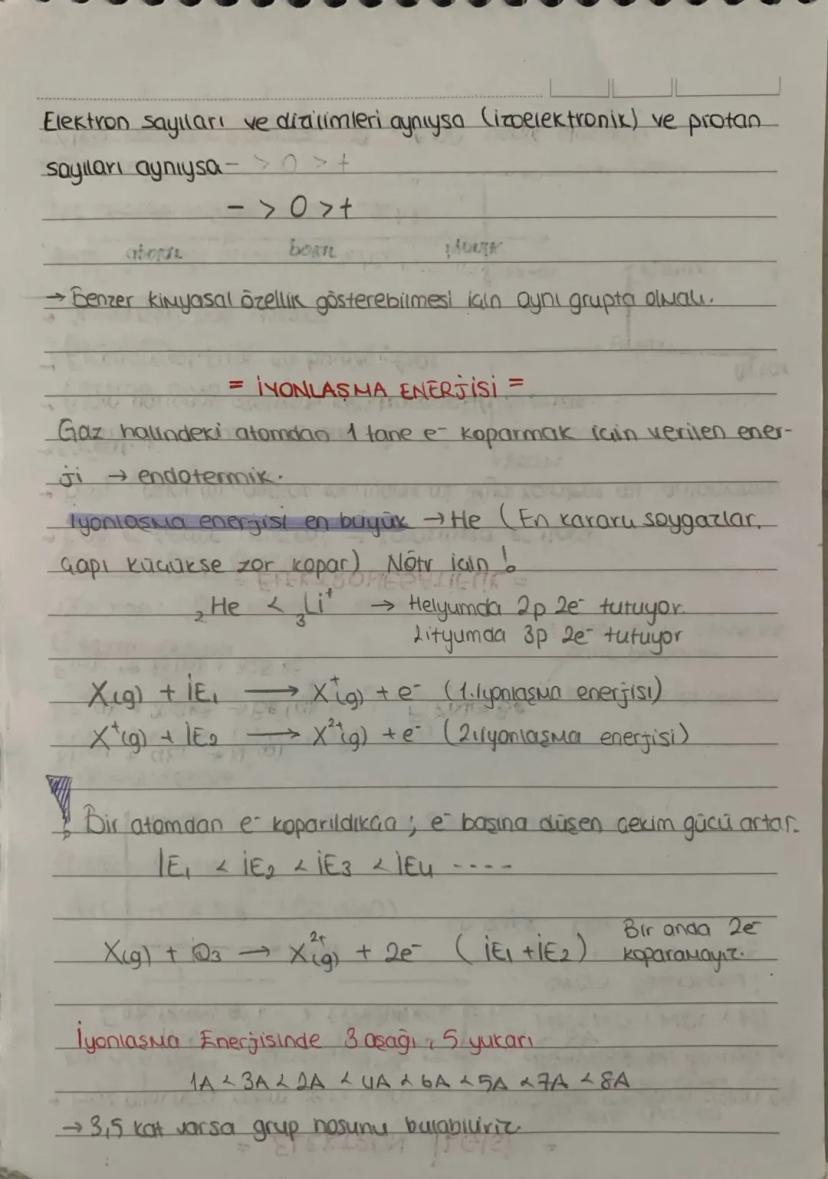 Elektron sayıları ve dizilimleri aynıysa (izoelektronik) ve proton
sayıları aynıysa - > 0 > +
- > 0 > +
→ Benzer kimyasal özellik gösterebilmesi için aynı grupta olmalı.
= İYONLAŞMA ENERJİSİ =
Gaz halindeki atomdan 1 tane e⁻ koparmak için verilen ener-
ji → endotermik.
İyonlaşma enerjisi en büyük → He (En kararlı soygazlar.
Çapı küçükse zor kopar) Nötr için !
₂He < ₃Li⁺ → Helyumda 2p 2e⁻ tutuyor.
Lityumda 3p 2e⁻ tutuyor
X(g) + İE₁ ⟶ X⁺(g) + e⁻ (1.İyonlaşma enerjisi)
X⁺(g) + İE₂ ⟶ X²⁺(g) + e⁻ (2.İyonlaşma enerjisi)
! Bir atomdan e⁻ koparıldıkça ; e⁻ başına düşen çekim gücü artar.
İE₁ < İE₂ < İE₃ < İE₄ ----
X(g) + Q₃ → X²⁺(g) + 2e⁻ (İE₁ + İE₂) Bir anda 2e⁻
koparamayız.
İyonlaşma Enerjisinde 3 aşağı, 5 yukarı
1A < 3A < 2A < 4A < 6A < 5A < 7A < 8A
→ 3,5 kat varsa grup nosunu bulabiliriz.